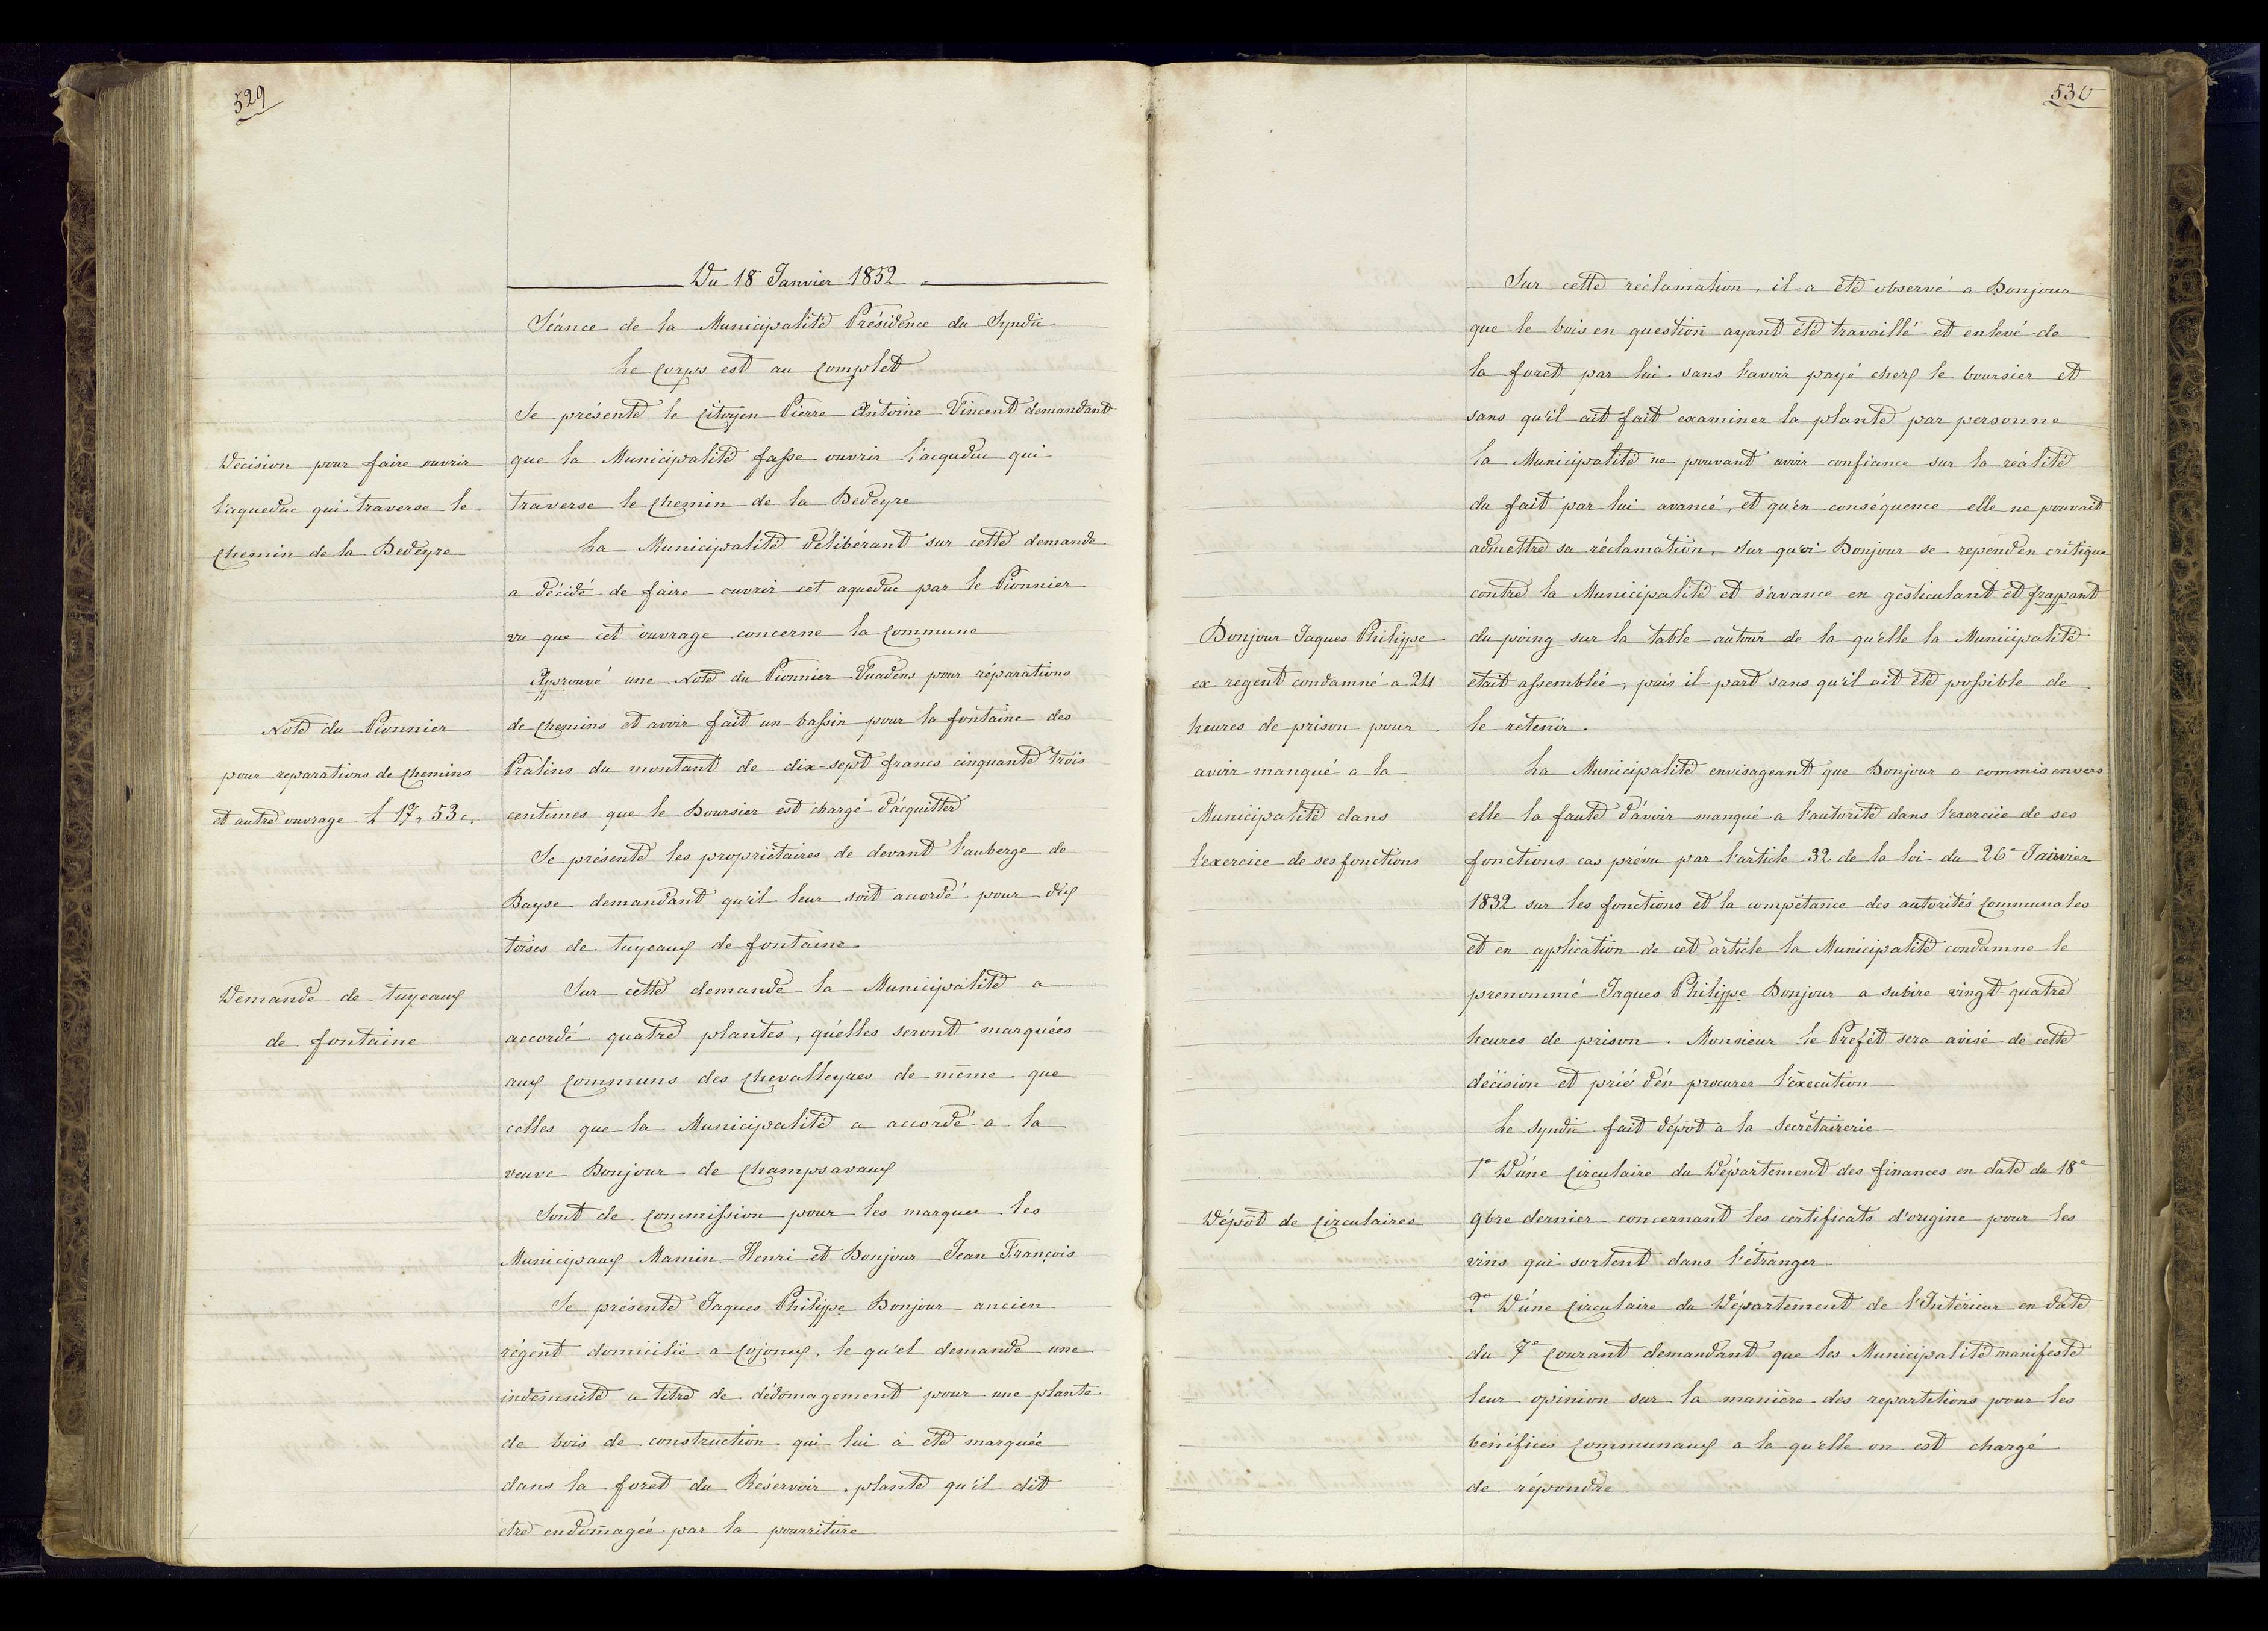 529
Du 18 Janvier 1852
Séance de la Municipalité Présidence du Syndic
Le Corps est au Complet
Se présente le Citoyen Pierre Antoine Vincent demandant
Decision pour faire ouvrir
l'aqueduc qui traverse le
Chemin de la Bedeyre
que la Municipalité fasse ouvrir l'acqueduc qui
traverse le Chemin de la Bedeyre
La Municipalité délibérant sur cette demande
a décidé de faire ouvrir cet aqueduc par le Pionnier
vu que cet ouvrage concerne la Commune
Approuvé une Note du Pionnier Vuadens pour réparations
Note du Pionnier
pour reparations de Chemins
et autre ouvrage £ 17 „ 53 c.
de Chemins et avoir fait un bassin pour la fontaine des
Pralins du montant de dix-sept francs cinquante trois
centimes que le Boursier est chargé d'acquitter
Se présente les propriétaires de devant l'auberge de
Bayse demandant qu'il leur soit accordé pour dix
toises de tuyeaux de fontaine.
Demande de tuyeaux
de fontaine
Sur cette demande la Municipalité a
accordé quatre plantes, qu'elles seront marquées
aux Communs des Chevalleyres de même que
celles que la Municipalité a accordé a la
veuve Bonjour de Champsavaux
Sont de Commission pour les marquer les
Municipaux Mamin Henri et Bonjour Jean François
Se présente Jaques Philippe Bonjour ancien
régent domicilié a Cojonex, le qu'el demande une
indemnité a titre de dédomagement pour une plante
de bois de construction qui lui à été marquée
dans la foret du Réservoir, plante qu'il dit
etre endomagée par la pourriture
530
Sur cette réclamation, il a été observé a Bonjour
que le bois en question ayant été travaillé et enlevé de
la foret par lui sans l'avoir payé chez le boursier et
sans qu'il ait fait examiner la plante par personne
la Municipalité ne pouvant avoir confiance sur la réalité
du fait par lui avancé, et qu'en conséquence elle ne pouvait
admettre sa réclamation, sur qu'oi Bonjour se repend en critique
contre la Municipalité et s'avance en gesticulant et frappant
Bonjour Jaques Philippe
ex regent condamné a 24
heures de prison pour
avoir manqué a la
Municipalité dans
l'exercice de ses fonctions
du poing sur la table autour de la qu'elle la Municipalité
etait assemblée, puis il part sans qu'il ait été possible de
le retenir.
La Municipalité envisageant que Bonjour a commis envers
elle la faute d'avoir manqué a l'autorité dans l'exercice de ses
fonctions cas prévu par l'article 32 de la loi du 26e Janvier
1832 sur les fonctions et la compétance des autorités Communales
et en application de cet article la Municipalité condamne le
prenommé Jaques Philippe Bonjour a subire vingt-quatre
heures de prison. Monsieur le Préfet sera avisé de cette
décision et prié d'en procurer l'éxecution
Le Syndic fait dépot à la Secrétairerie
Dépôt de Circulaires
1o D'une Circulaire du Département des finances en date du 18e
9bre dernier concernant les certificats d'origine pour les
vins qui sortent dans l'étranger
2o D'une Circulaire du Département de l'Intérieur en date
du 7e Courant demandant que les Municipalité manifeste
leur opinion sur la manière des repartitions pour les
bénéfices Communaux a la qu'elle on est chargé
de répondre